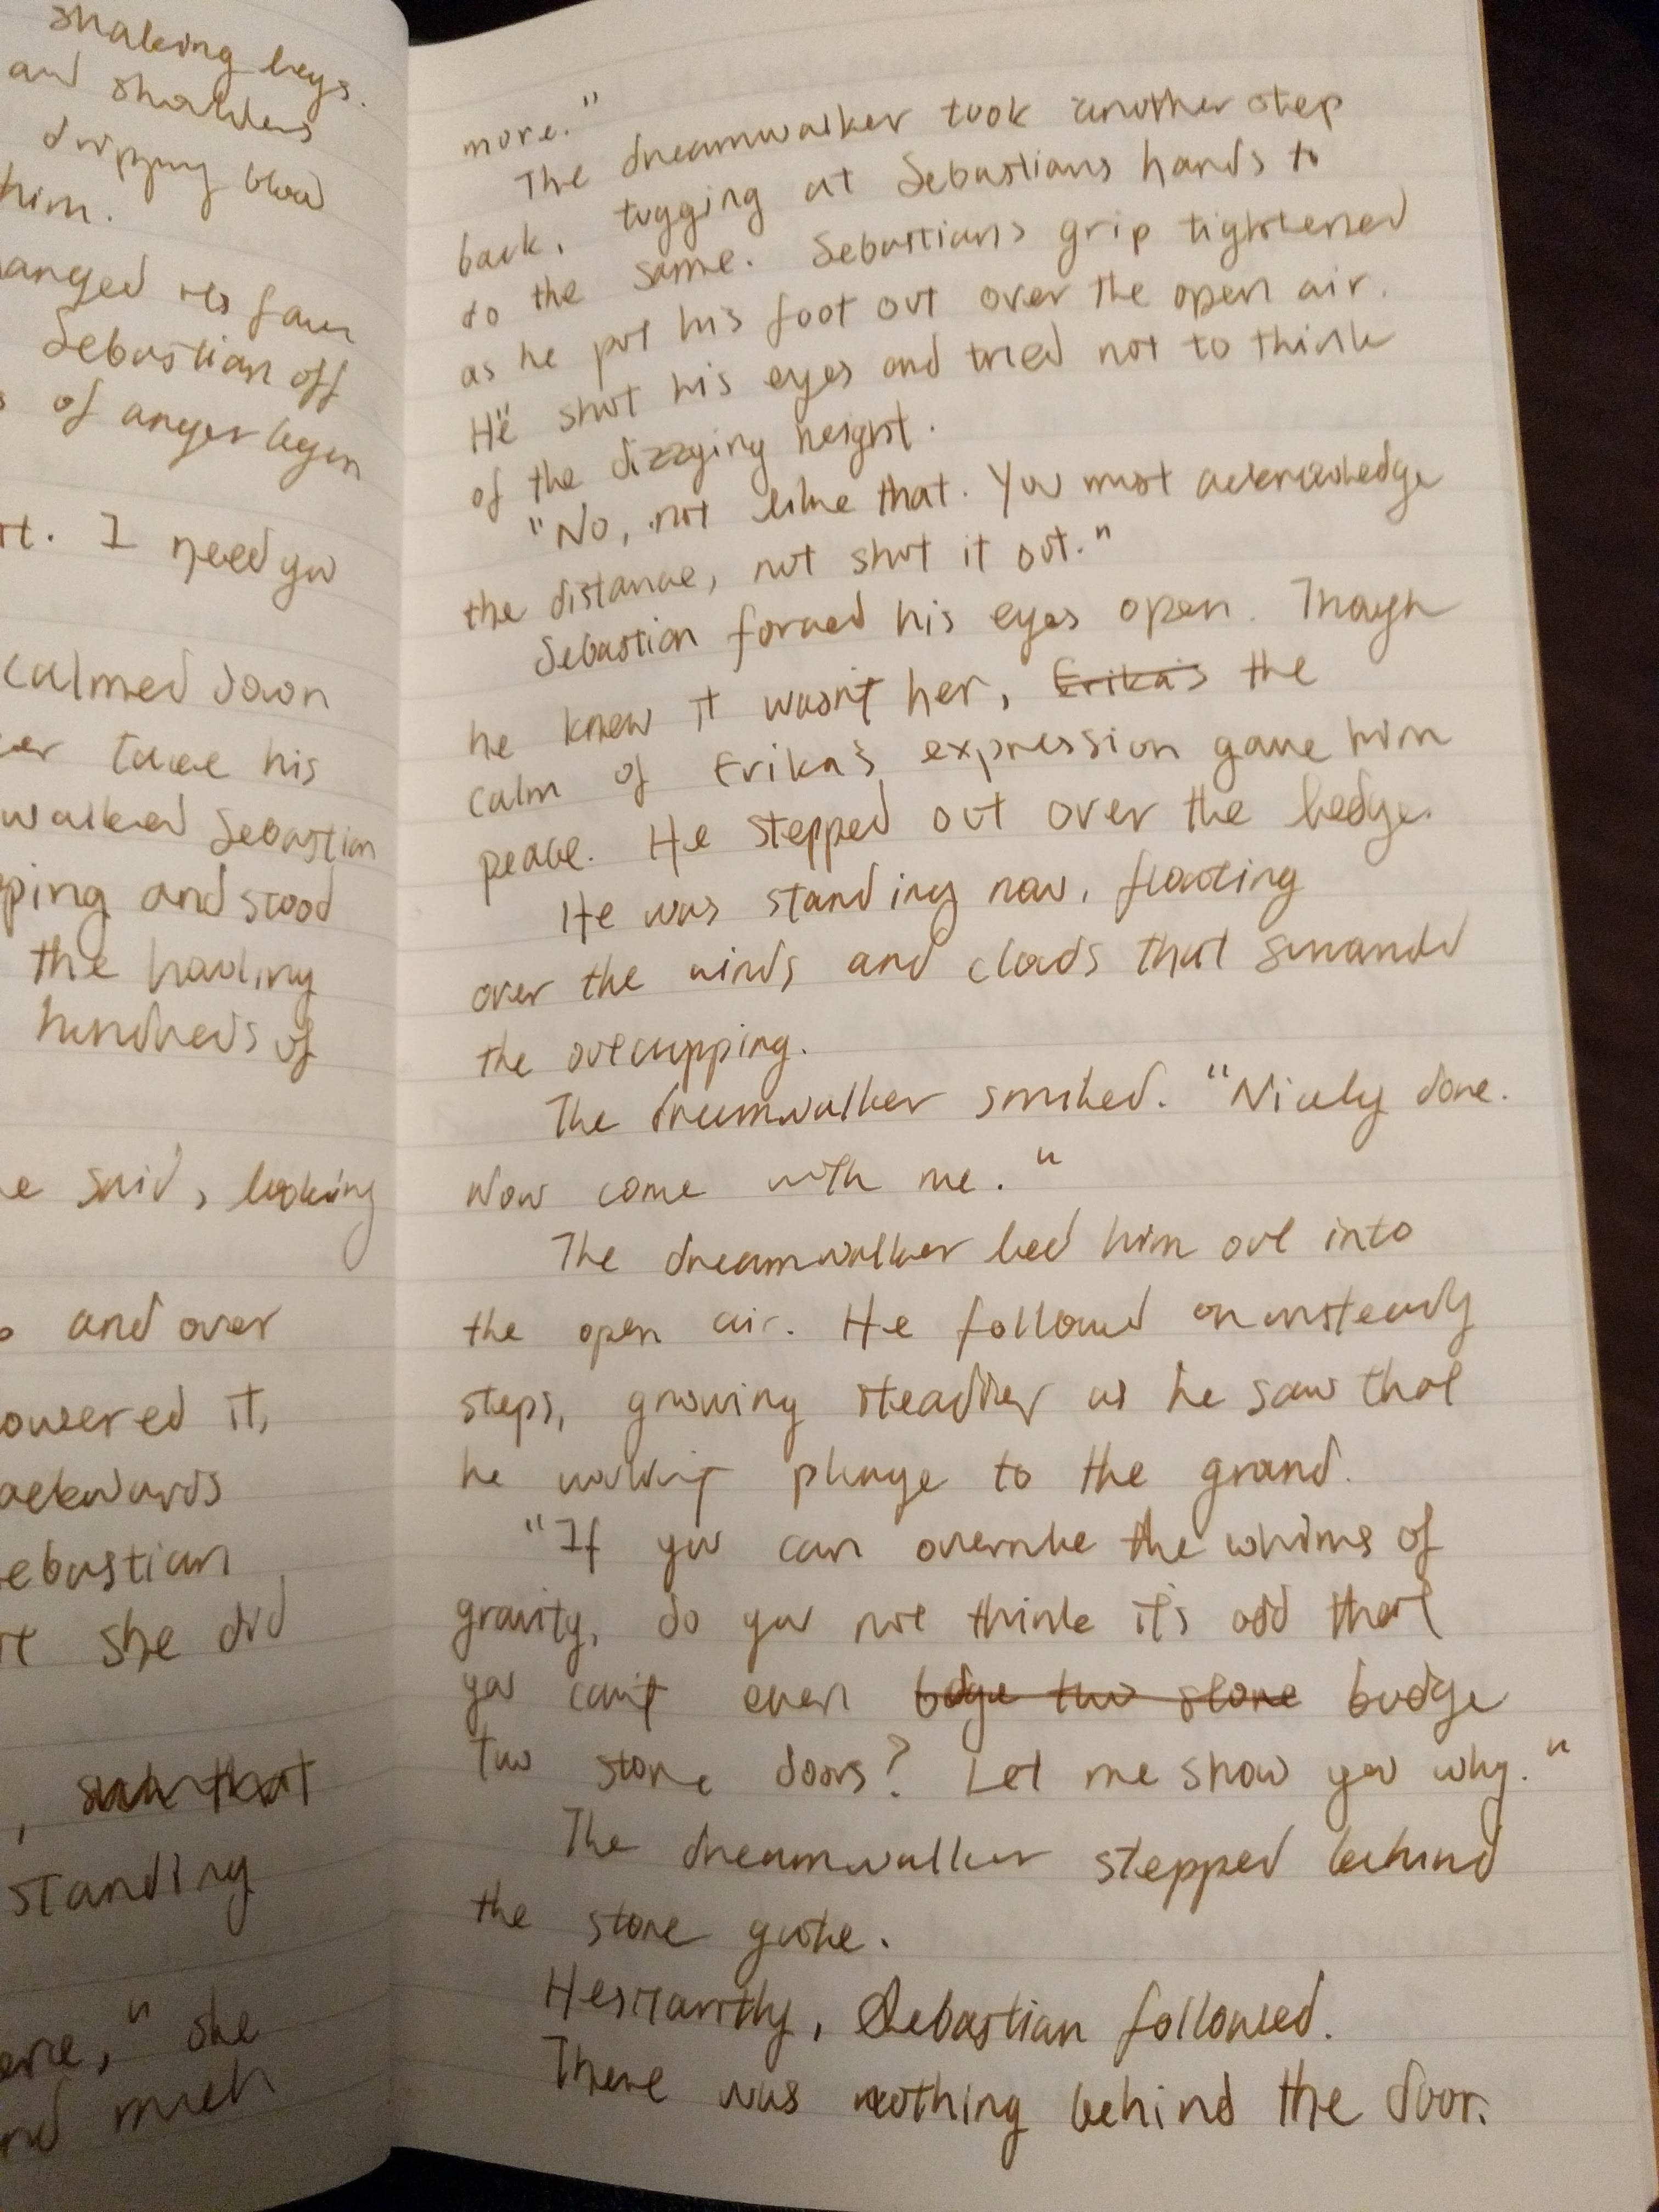 shaking legs.
and shoulders
dripping blood
him.
anged its form
Sebastian off
of anger began
rt. I need you
calmed down
er take his
walked Sebastian
pping and stood
the howling
hundreds of
e said, looking
and over
owered it,
ackwards
ebastian
she did
, such that
standing
ere," she
nd much
more."
The dreamwalker took another step
back, tugging at Sebastians hands to
do the same. Sebastians grip tightened
as he put his foot out over the open air.
He shut his eyes and tried not to think
of the dizzying height.
"No, not like that. You must acknowledge
the distance, not shut it out."
Sebastian forced his eyes open. Though
he knew it wasn't her, Erika's the
calm of Erika's expression gave him
peace. He stepped out over the ledge.
He was standing now, floating
over the winds and clouds that surround
the outcropping.
The dreamwalker smiled. "Nicely done.
Now come with me."
The dreamwalker led him out into
the open air. He followed on unsteady
steps, growing steadier as he saw that
he wouldn't plunge to the ground.
"If you can overrule the whims of
gravity, do you not think it's odd that
you can't even bdge two stone budge
two stone doors? Let me show you why."
The dreamwalker stepped behind
the stone gate.
Hesitantly, Sebastian followed.
There was nothing behind the door.